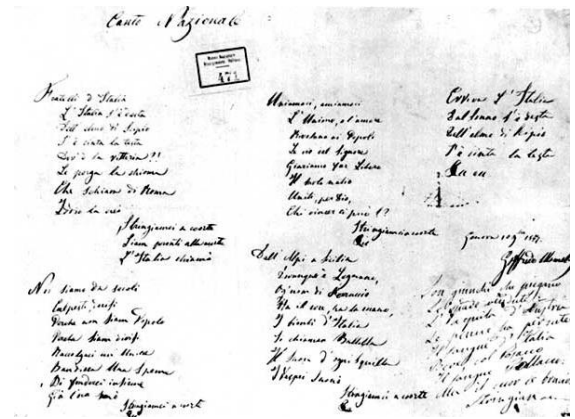 Canto Nazionale
471
Fratelli d'Italia
L'Italia s'è desta
Dell'elmo di Scipio
S'è cinta la testa
Dov'è la vittoria?!
Le porga la chioma
Che schiava di Roma
Iddio la creò
Stringiamci a coorte
Siam pronti alla morte
L'Italia chiamò
Noi siamo da secoli
Calpesti, derisi
Perché non siam Popolo
Perché siam divisi
Raccolgaci un'Unica
Bandiera Una Speme
Di fonderci insieme
Già l'ora suonò
Stringiamci a coorte
Uniamoci, amiamoci
L'Unione, e l'amore
Rivelano ai Popoli
Le vie del Signore
Giuriamo far Libero
Il suolo natio
Uniti, per Dio,
Chi vincer ci può!?
Stringiamci a coorte
Dall'Alpi a Sicilia
Dovunque è Legnano,
Ogn'uom di Ferruccio
Ha il core, ha la mano,
I bimbi d'Italia
Si chiaman Balilla
Il suon d'ogni squilla
I Vespri suonò
Stringiamci a coorte
Evviva l'Italia
Dal sonno s'è desta
Dell'elmo di Scipio
S'è cinta la testa
Genova
Goffredo Mameli
Son giunchi che piegano
Le spade vendute
L'Aquila d'Austria
Le penne ha perdute
Il sangue d'Italia
Bevé, col Cosacco
Il sangue Polacco
Ma il cuor le bruciò
Stringiam